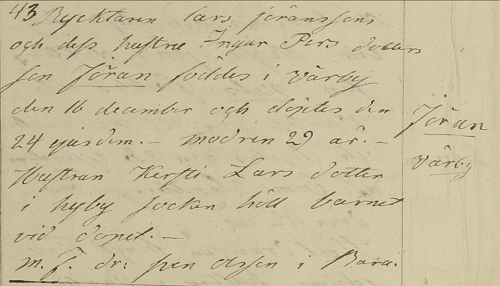 43 Rycktaren Lars jöranssons
och dess hustru Ingar Pers dotters
son Jöran föddes i Värby
den 16 december och döptes den
24 ejusdem. - modren 29 år. -
Hustrun Kersti Lars dotter
i hyby socken höll barnet
vid dopet. -
m. f. dr: sven olsson i Bara.
Jöran
Värby